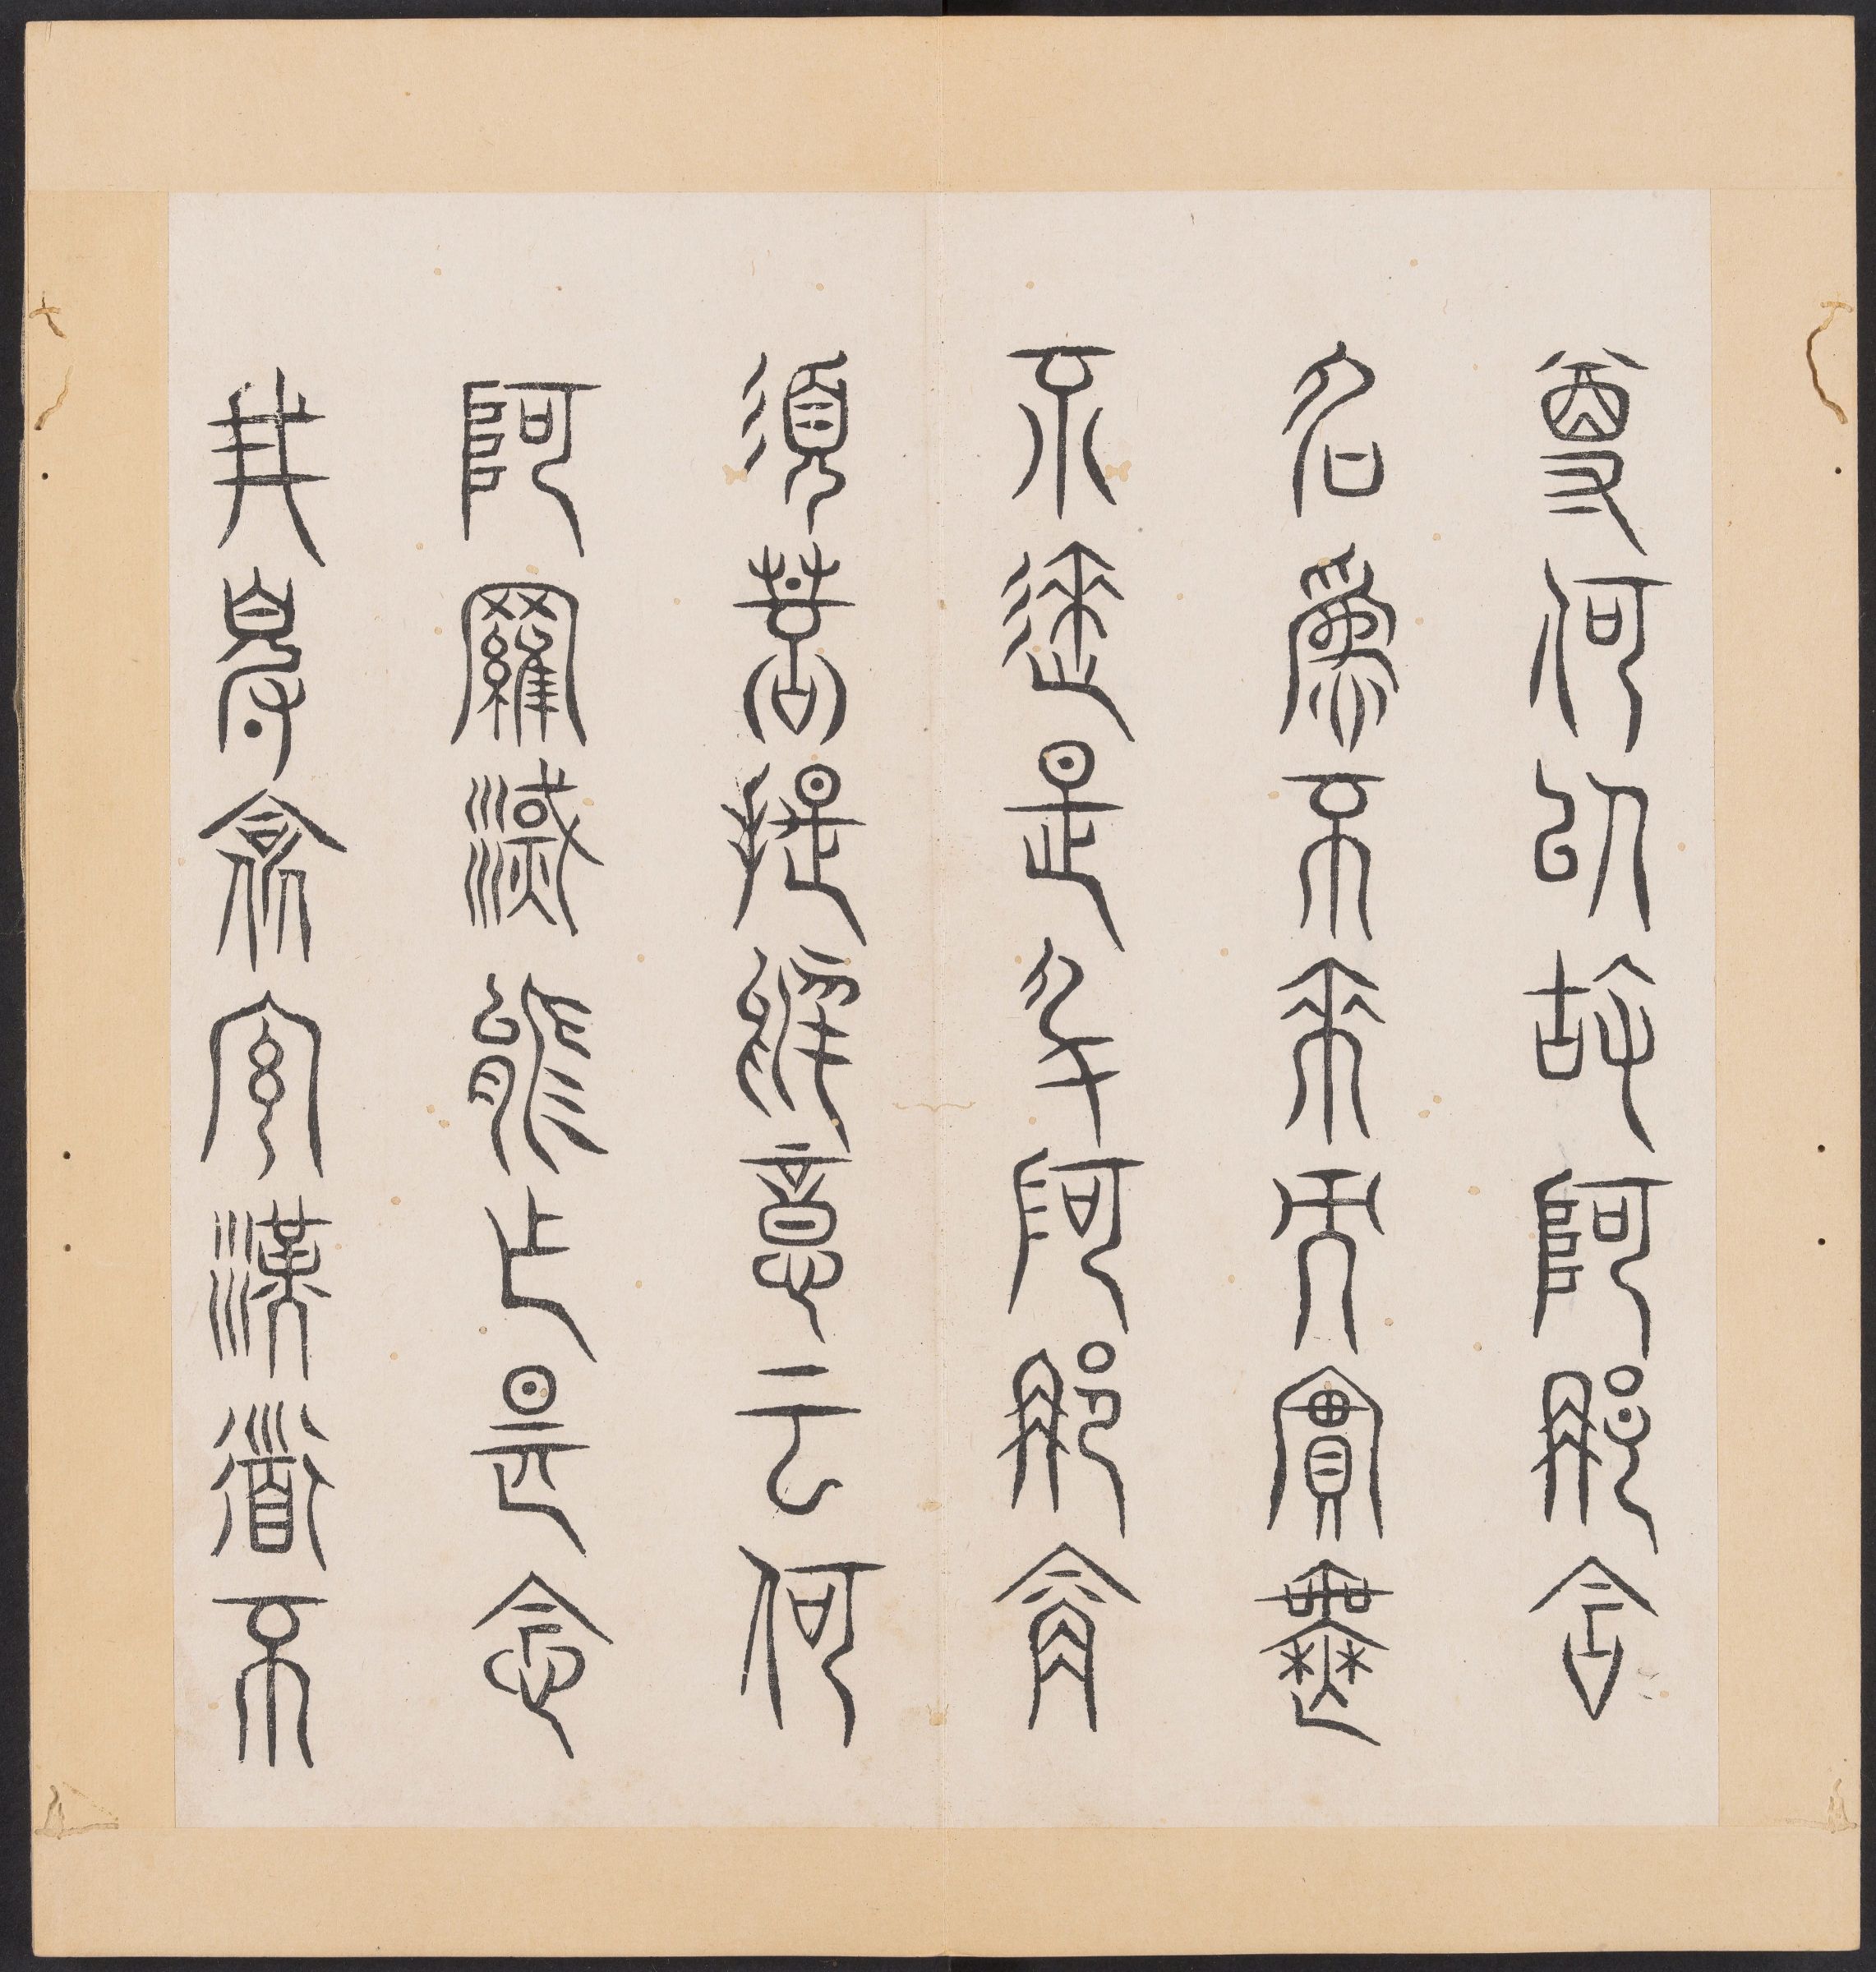 尊何以故阿那含
名為不來而實無
不來是名阿那含
須菩提於意云何
阿羅漢能作是念
我得阿羅漢道不